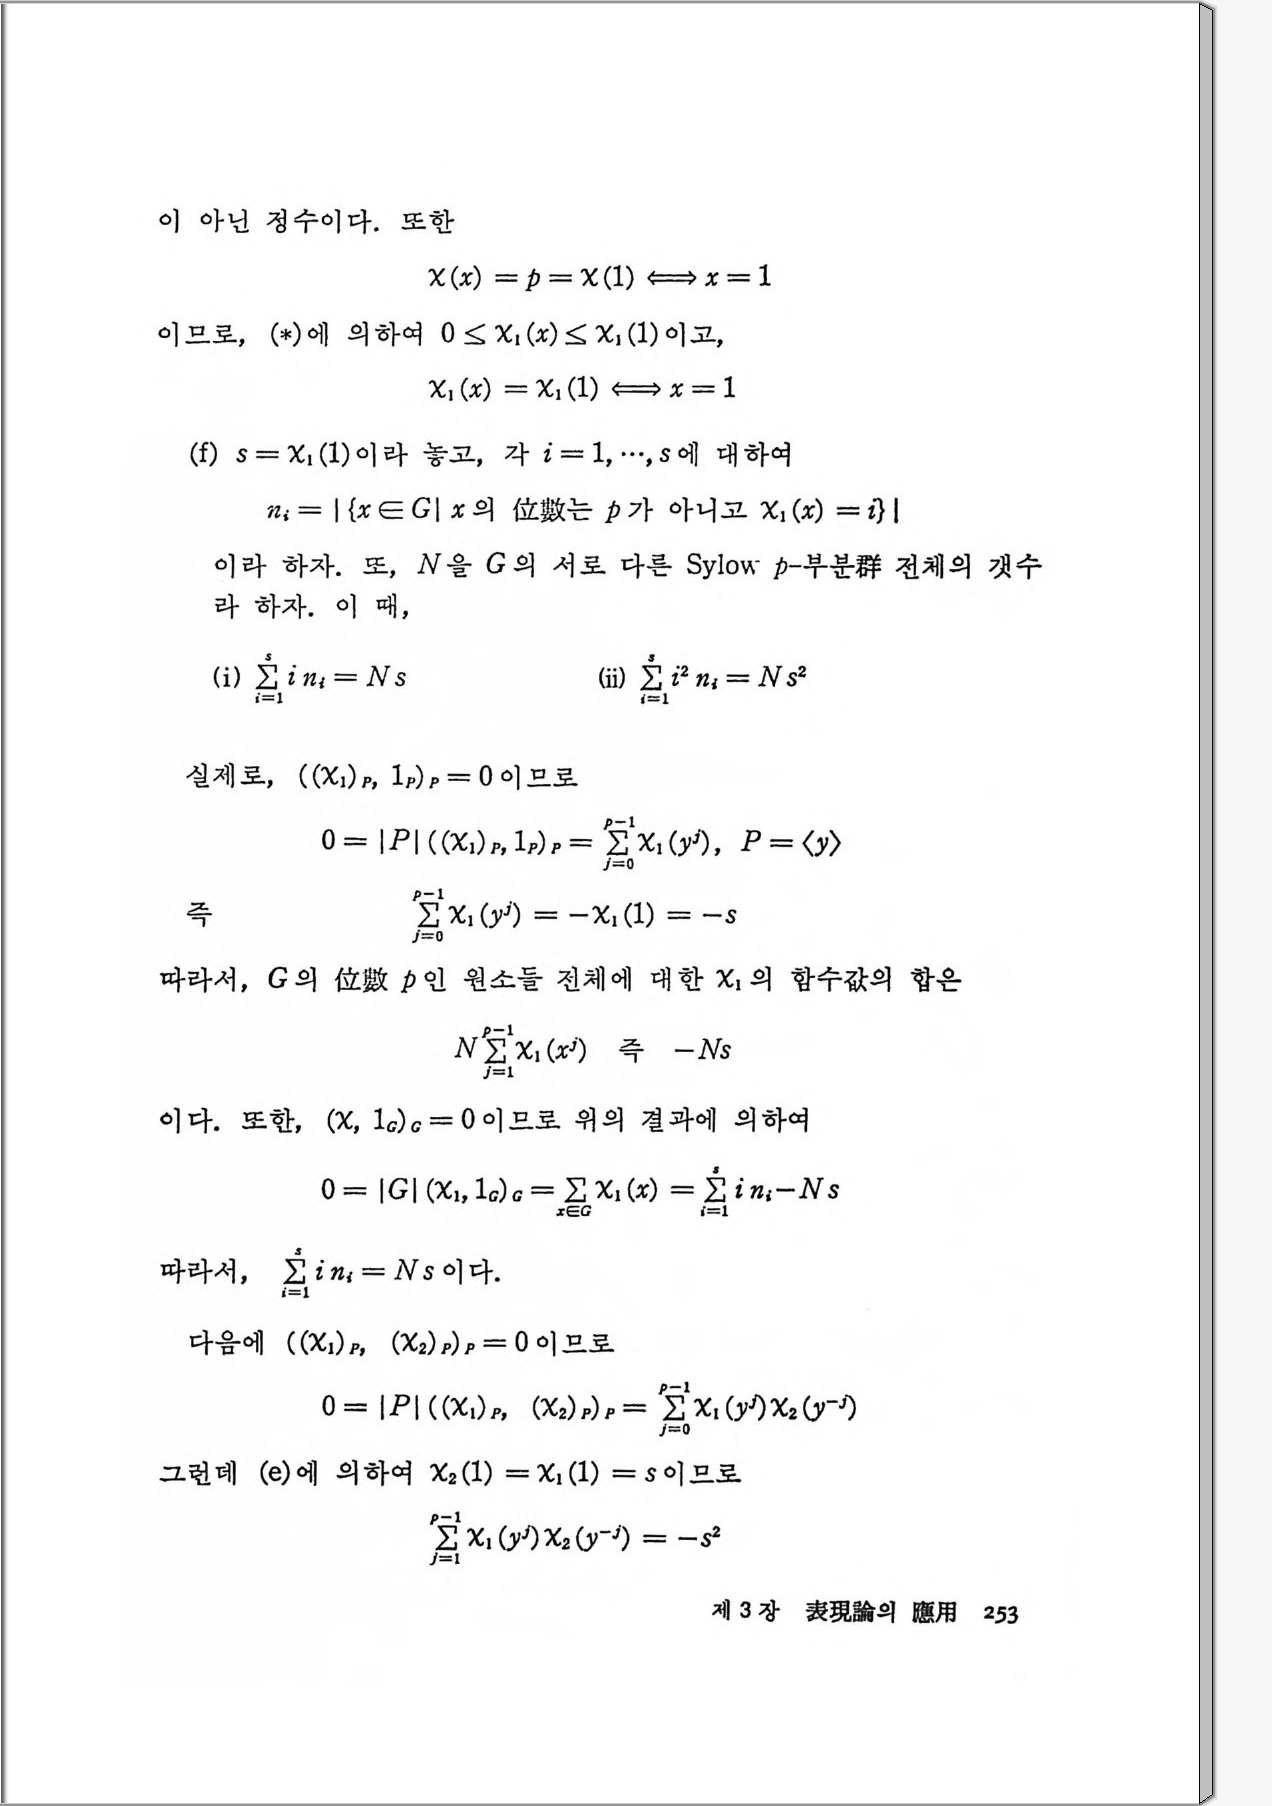 이 아닌 정수이다. 또한
χ(x) = p = χ(1) ⟺ x = 1
이므로, (*)에 의하여 0 ≤ χ₁(x) ≤ χ₁(1)이고,
χ₁(x) = χ₁(1) ⟺ x = 1
(f) s = χ₁(1)이라 놓고, 각 i = 1, ⋯, s에 대하여
nᵢ = |{x ∈ G| x의 位數는 p가 아니고 χ₁(x) = i}|
이라 하자. 또, N을 G의 서로 다른 Sylow p-부분群 전체의 갯수
라 하자. 이 때,
(i) ∑_{i=1}^{s} i nᵢ = N s (ii) ∑_{i=1}^{s} i² nᵢ = N s²
실제로, ((χ₁)_P, 1_P)_P = 0이므로
0 = |P| ((χ₁)_P, 1_P)_P = ∑_{j=0}^{p−1} χ₁(y^j), P = ⟨y⟩
즉 ∑_{j=0}^{p−1} χ₁(y^j) = −χ₁(1) = −s
따라서, G의 位數 p인 원소들 전체에 대한 χ₁의 함수값의 합은
N ∑_{j=1}^{p−1} χ₁(x^j) 즉 −Ns
이다. 또한, (χ, 1_G)_G = 0이므로 위의 결과에 의하여
0 = |G| (χ₁, 1_G)_G = ∑_{x∈G} χ₁(x) = ∑_{i=1}^{s} i nᵢ − N s
따라서, ∑_{i=1}^{s} i nᵢ = N s이다.
다음에 ((χ₁)_P, (χ₂)_P)_P = 0이므로
0 = |P| ((χ₁)_P, (χ₂)_P)_P = ∑_{j=0}^{p−1} χ₁(y^j) χ₂(y^{−j})
그런데 (e)에 의하여 χ₂(1) = χ₁(1) = s이므로
∑_{j=1}^{p−1} χ₁(y^j) χ₂(y^{−j}) = −s²
제 3 장 表現論의 應用 253